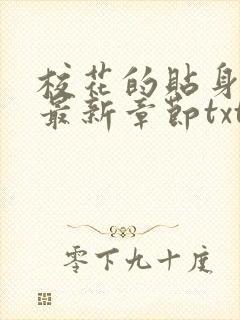 校花的貼身
最新章節txt
零下九十度